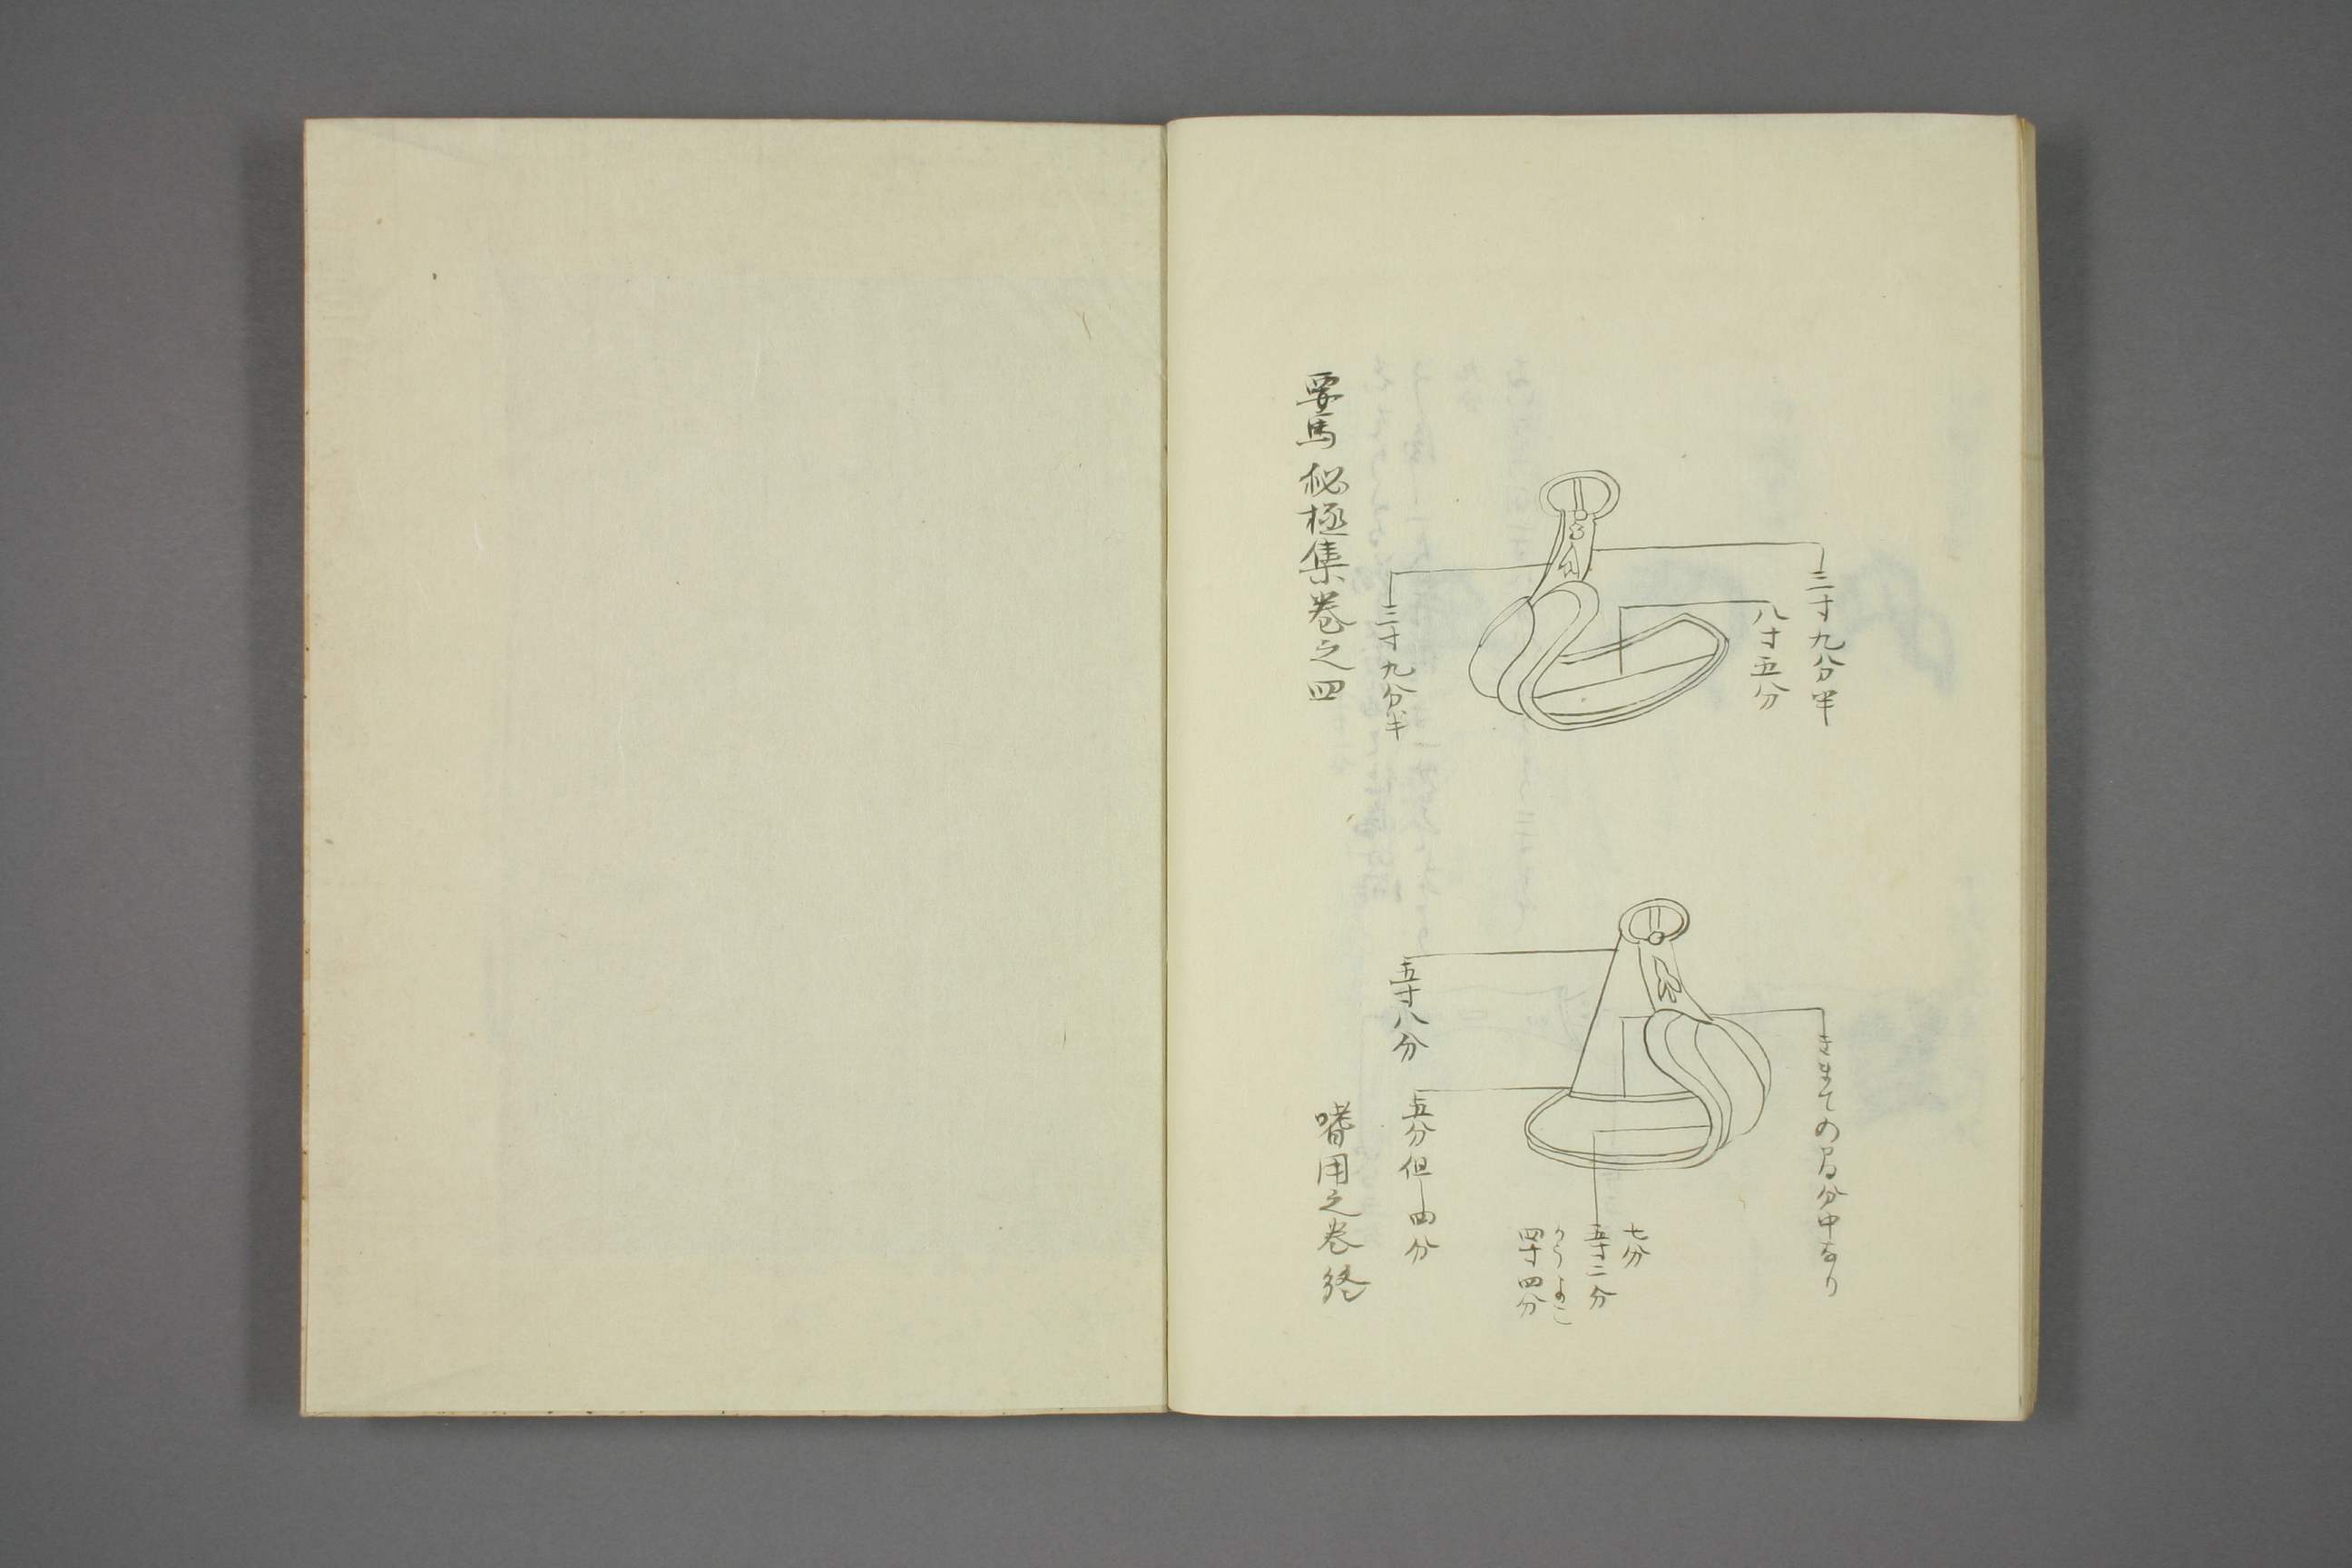 三寸九分半
八寸五分
三寸九分半
きまての曷分中なり
七分
五寸二分
四寸四分
五寸八分
五分但曲分
要馬秘極集巻之四
嗜用之巻終